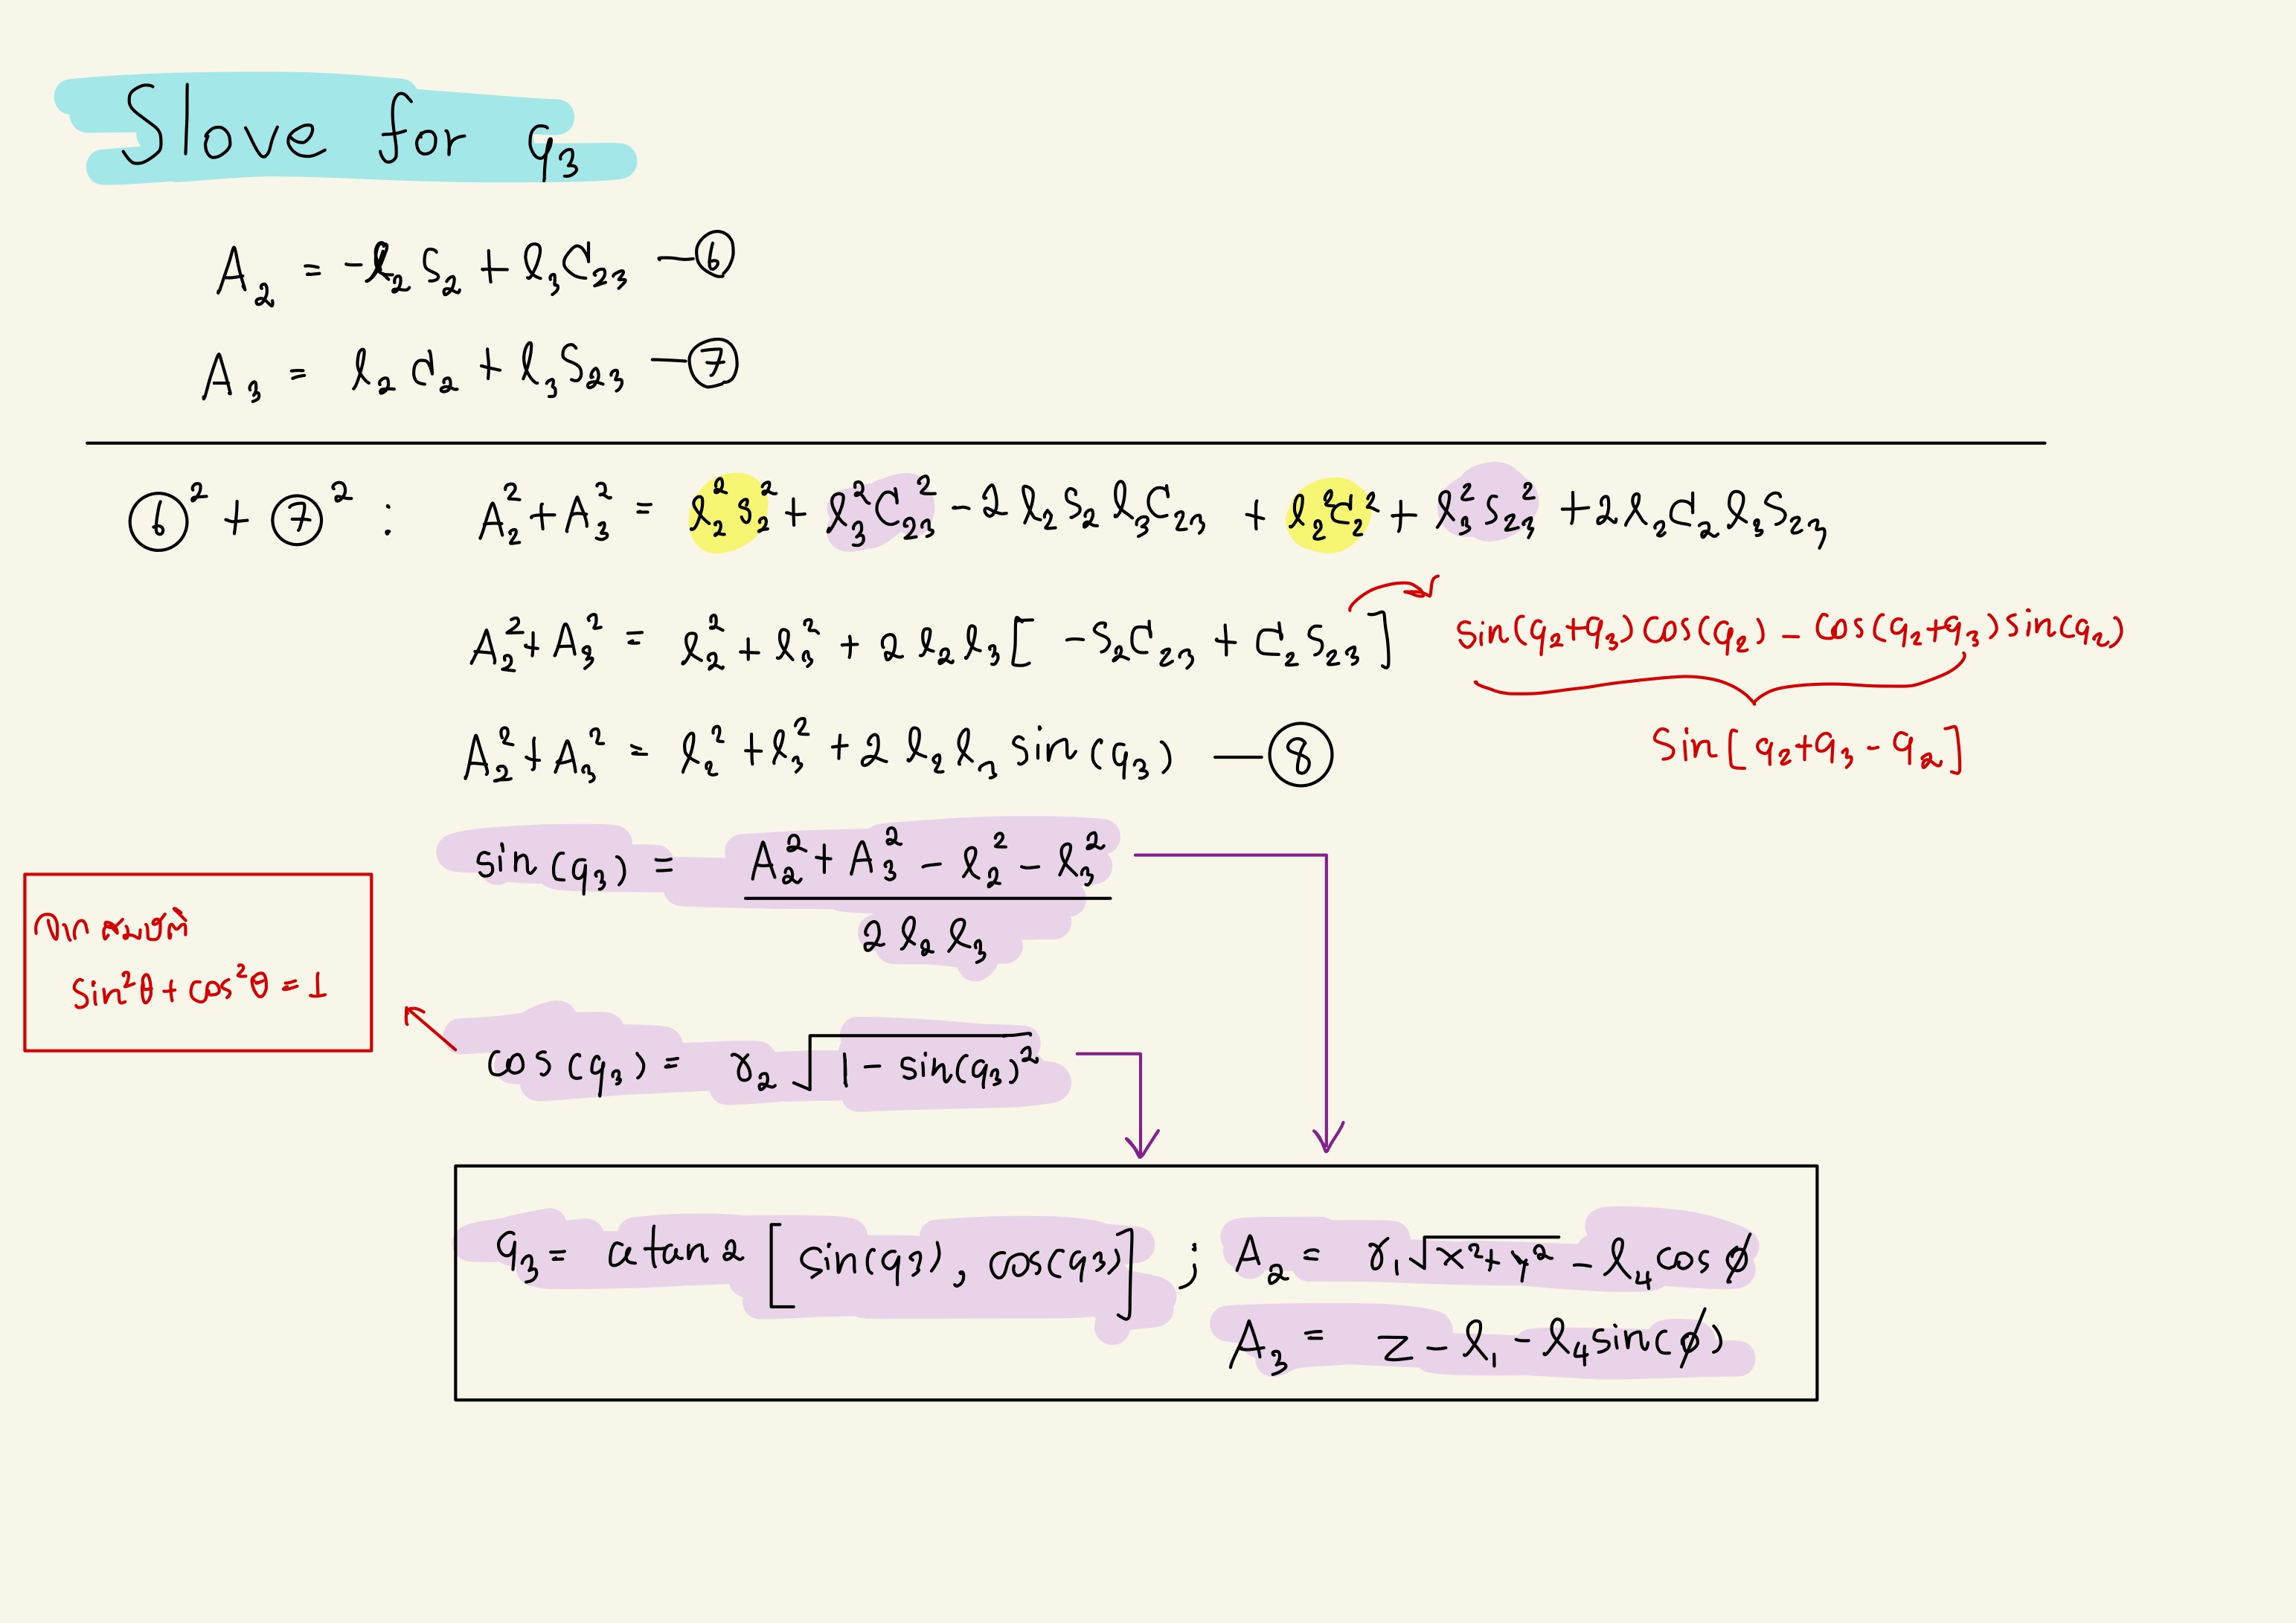 Slove for q₃
A₂ = -l₂ S₂ + l₃ C₂₃ —⑥
A₃ = l₂ C₂ + l₃ S₂₃ —⑦
⑥² + ⑦² : A₂² + A₃² = l₂² S₂² + l₃² C₂₃² - 2 l₂ S₂ l₃ C₂₃ + l₂² C₂² + l₃² S₂₃² + 2 l₂ C₂ l₃ S₂₃
A₂² + A₃² = l₂² + l₃² + 2 l₂ l₃ [ - S₂ C₂₃ + C₂ S₂₃ ] sin(q₂+q₃) cos(q₂) - cos(q₂+q₃) sin(q₂)
sin[ q₂+q₃ - q₂ ]
A₂² + A₃² = l₂² + l₃² + 2 l₂ l₃ sin(q₃) —⑧
sin(q₃) = (A₂² + A₃² - l₂² - l₃²) / (2 l₂ l₃)
จากสมบัติ
sin²θ + cos²θ = 1
cos(q₃) = γ₂ √(1 - sin(q₃)²)
q₃ = atan2 [ sin(q₃), cos(q₃) ] ; A₂ = γ₁ √(x²+y²) - l₄ cos ϕ
A₃ = z - l₁ - l₄ sin(ϕ)